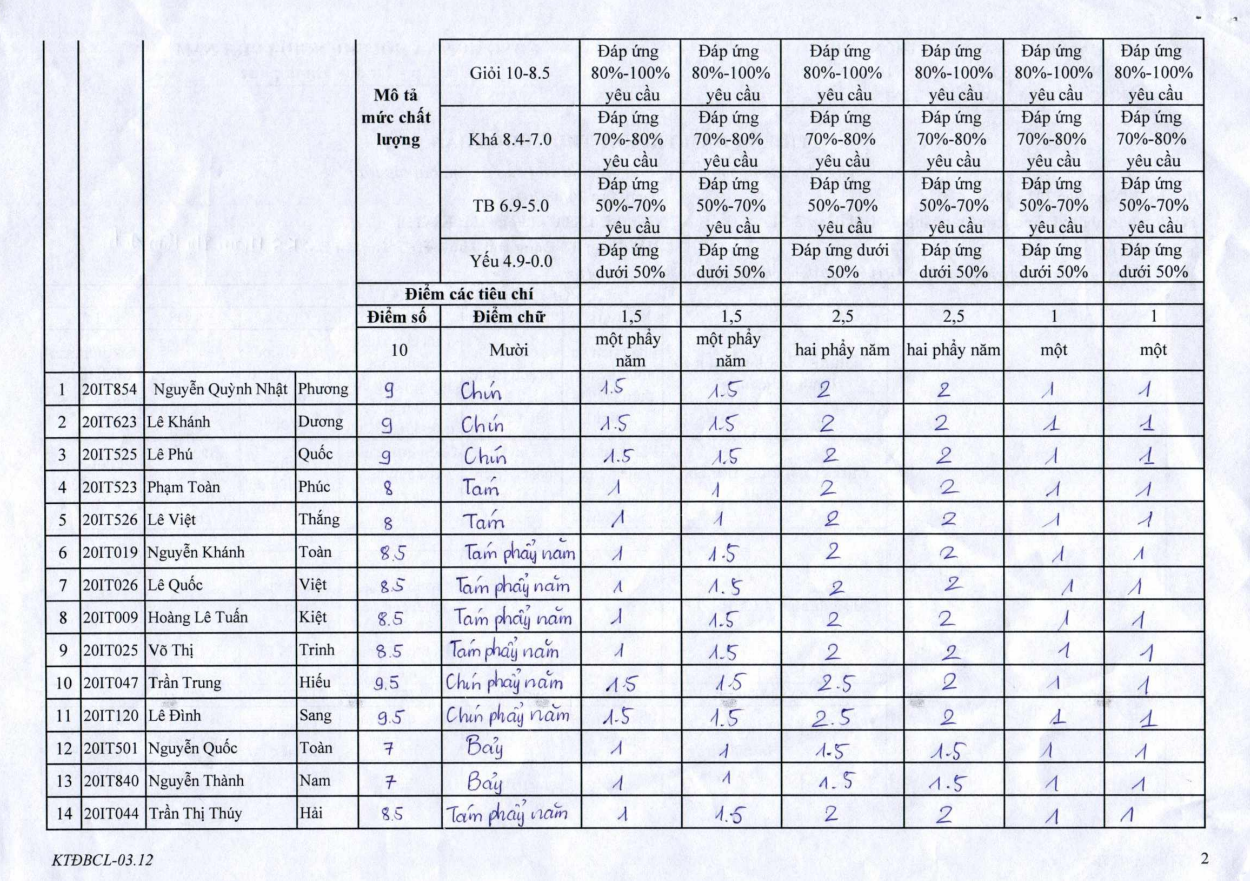 Giỏi 10-8.5 Đáp ứng 80%-100% yêu cầu Đáp ứng 80%-100% yêu cầu Đáp ứng 80%-100% yêu cầu Đáp ứng 80%-100% yêu cầu Đáp ứng 80%-100% yêu cầu Đáp ứng 80%-100% yêu cầu
Mô tả mức chất lượng
Khá 8.4-7.0 Đáp ứng 70%-80% yêu cầu Đáp ứng 70%-80% yêu cầu Đáp ứng 70%-80% yêu cầu Đáp ứng 70%-80% yêu cầu Đáp ứng 70%-80% yêu cầu Đáp ứng 70%-80% yêu cầu
TB 6.9-5.0 Đáp ứng 50%-70% yêu cầu Đáp ứng 50%-70% yêu cầu Đáp ứng 50%-70% yêu cầu Đáp ứng 50%-70% yêu cầu Đáp ứng 50%-70% yêu cầu Đáp ứng 50%-70% yêu cầu
Yếu 4.9-0.0 Đáp ứng dưới 50% Đáp ứng dưới 50% Đáp ứng dưới 50% Đáp ứng dưới 50% Đáp ứng dưới 50% Đáp ứng dưới 50%
Điểm các tiêu chí
Điểm số Điểm chữ 1,5 1,5 2,5 2,5 1 1
10 Mười một phẩy năm một phẩy năm hai phẩy năm hai phẩy năm một một
1 20IT854 Nguyễn Quỳnh Nhật Phương 9 Chín 1.5 1.5 2 2 1 1
2 20IT623 Lê Khánh Dương 9 Chín 1.5 1.5 2 2 1 1
3 20IT525 Lê Phú Quốc 9 Chín 1.5 1.5 2 2 1 1
4 20IT523 Phạm Toàn Phúc 8 Tám 1 1 2 2 1 1
5 20IT526 Lê Việt Thắng 8 Tám 1 1 2 2 1 1
6 20IT019 Nguyễn Khánh Toàn 8.5 Tám phẩy năm 1 1.5 2 2 1 1
7 20IT026 Lê Quốc Việt 8.5 Tám phẩy năm 1 1.5 2 2 1 1
8 20IT009 Hoàng Lê Tuấn Kiệt 8.5 Tám phẩy năm 1 1.5 2 2 1 1
9 20IT025 Võ Thị Trinh 8.5 Tám phẩy năm 1 1.5 2 2 1 1
10 20IT047 Trần Trung Hiếu 9.5 Chín phẩy năm 1.5 1.5 2.5 2 1 1
11 20IT120 Lê Đình Sang 9.5 Chín phẩy năm 1.5 1.5 2.5 2 1 1
12 20IT501 Nguyễn Quốc Toàn 7 Bảy 1 1 1.5 1.5 1 1
13 20IT840 Nguyễn Thành Nam 7 Bảy 1 1 1.5 1.5 1 1
14 20IT044 Trần Thị Thúy Hải 8.5 Tám phẩy năm 1 1.5 2 2 1 1
KTĐBCL-03.12 2